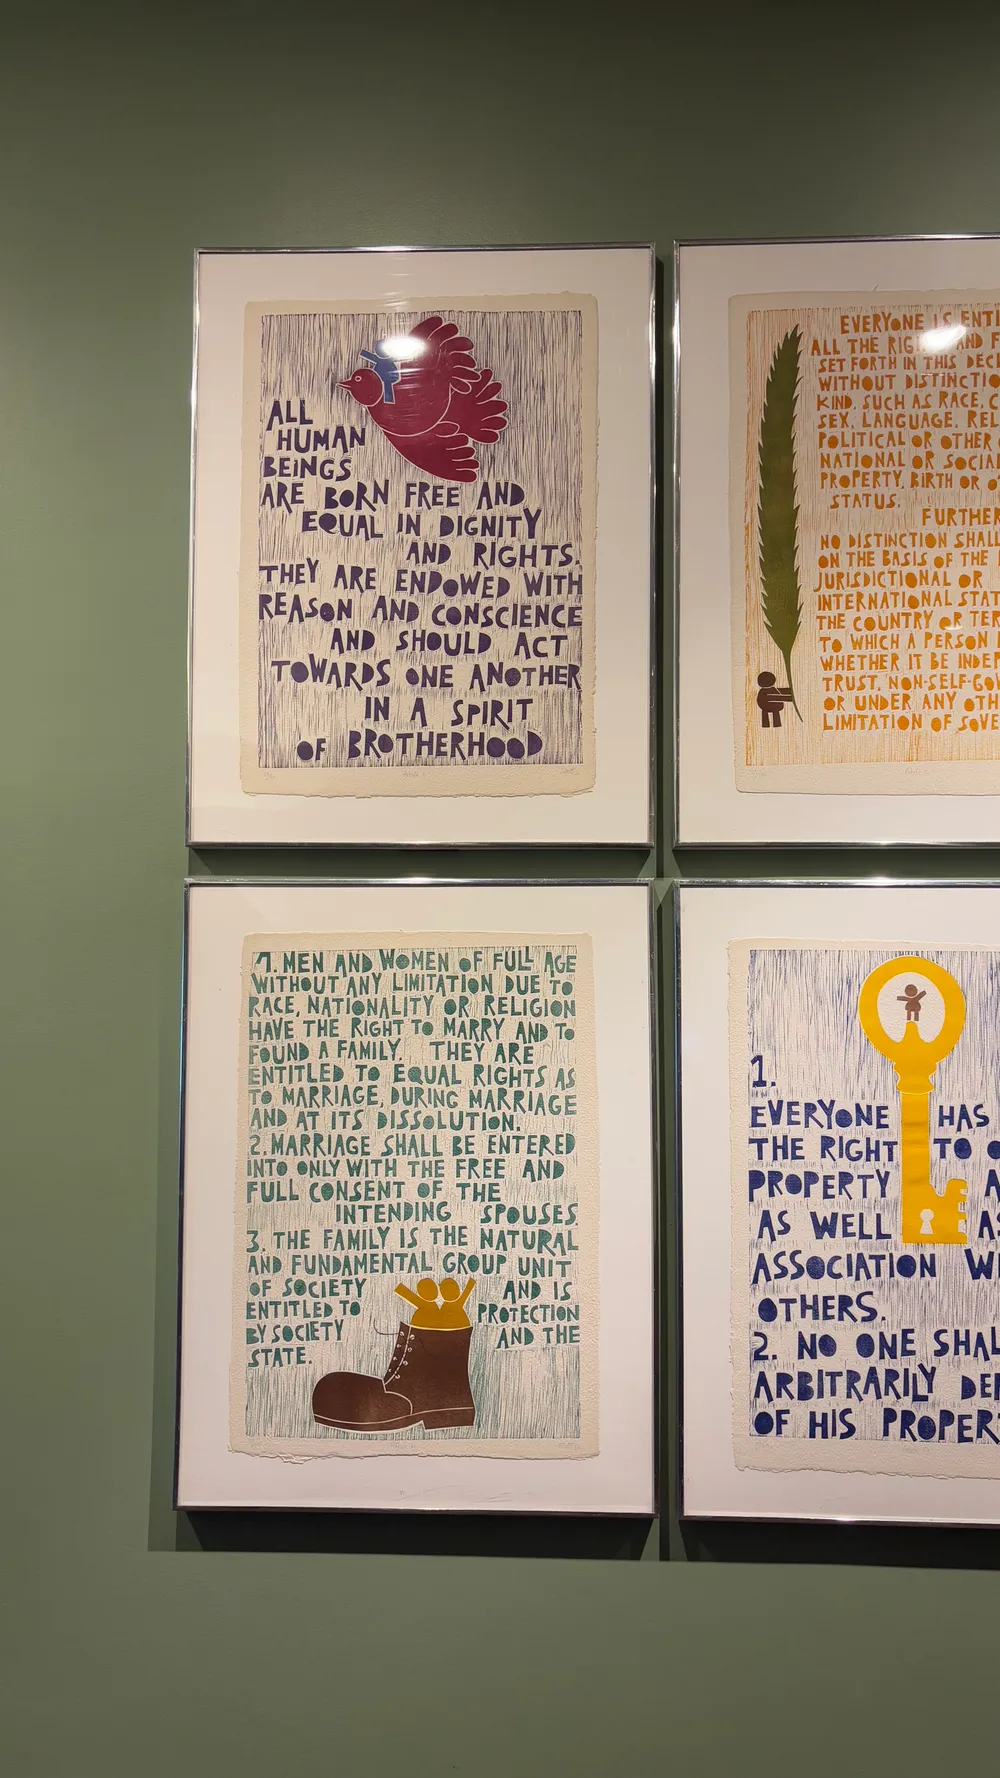 ALL
HUMAN
BEINGS
ARE BORN FREE AND
EQUAL IN DIGNITY
AND RIGHTS.
THEY ARE ENDOWED WITH
REASON AND CONSCIENCE
AND SHOULD ACT
TOWARDS ONE ANOTHER
IN A SPIRIT
OF BROTHERHOOD
EVERYONE IS
ALL THE AND
SET FORTH IN THIS
WITHOUT
KIND, SUCH AS RACE,
SEX, LANGUAGE,
POLITICAL OR OTHER
NATIONAL OR
PROPERTY, BIRTH OR
STATUS.
FURTHER
NO DISTINCTION SHALL
ON THE BASIS OF THE
JURISDICTIONAL OR
INTERNATIONAL
THE COUNTRY OR
TO WHICH A PERSON
WHETHER IT BE
TRUST, NON-SELF-
OR UNDER ANY
LIMITATION OF
1. MEN AND WOMEN OF FULL AGE
WITHOUT ANY LIMITATION DUE TO
RACE, NATIONALITY OR RELIGION
HAVE THE RIGHT TO MARRY AND TO
FOUND A FAMILY. THEY ARE
ENTITLED TO EQUAL RIGHTS AS
TO MARRIAGE, DURING MARRIAGE
AND AT ITS DISSOLUTION.
2. MARRIAGE SHALL BE ENTERED
INTO ONLY WITH THE FREE AND
FULL CONSENT OF THE
INTENDING SPOUSES.
3. THE FAMILY IS THE NATURAL
AND FUNDAMENTAL GROUP UNIT
OF SOCIETY AND IS
ENTITLED TO PROTECTION
BY SOCIETY AND THE
STATE.
1.
EVERYONE HAS
THE RIGHT TO
PROPERTY
AS WELL
ASSOCIATION
OTHERS.
2. NO ONE
ARBITRARILY
OF HIS